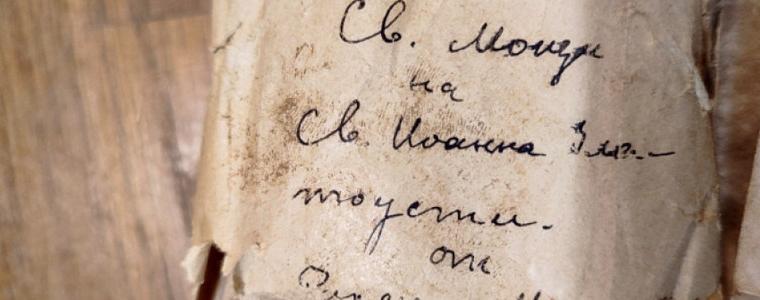 Св. Мощи
на
Св. Иоанна Зла-
тоусти.
от